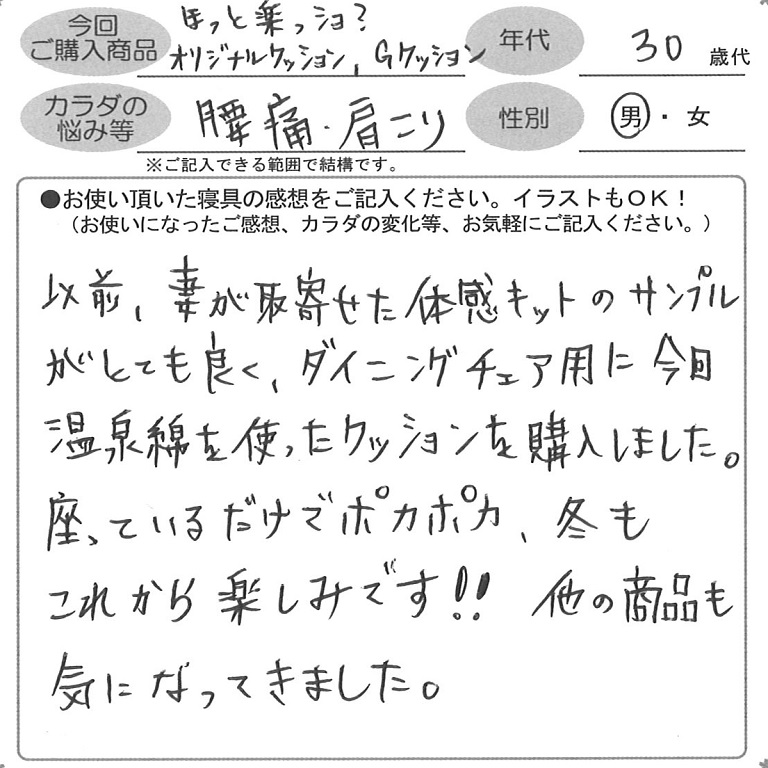 今回
ご購入商品
ほっと楽っショ?
オリジナルクッション, Gクッション
年代
30 歳代
カラダの
悩み等
腰痛・肩こり
性別
男・女
※ご記入できる範囲で結構です。
●お使い頂いた寝具の感想をご記入ください。イラストもOK!
(お使いになったご感想、カラダの変化等、お気軽にご記入ください。)
以前、妻が取寄せた体感キットのサンプル
がとても良く、ダイニングチェア用に今回
温泉綿を使ったクッションを購入しました。
座っているだけでポカポカ、冬も
これから楽しみです!! 他の商品も
気になってきました。